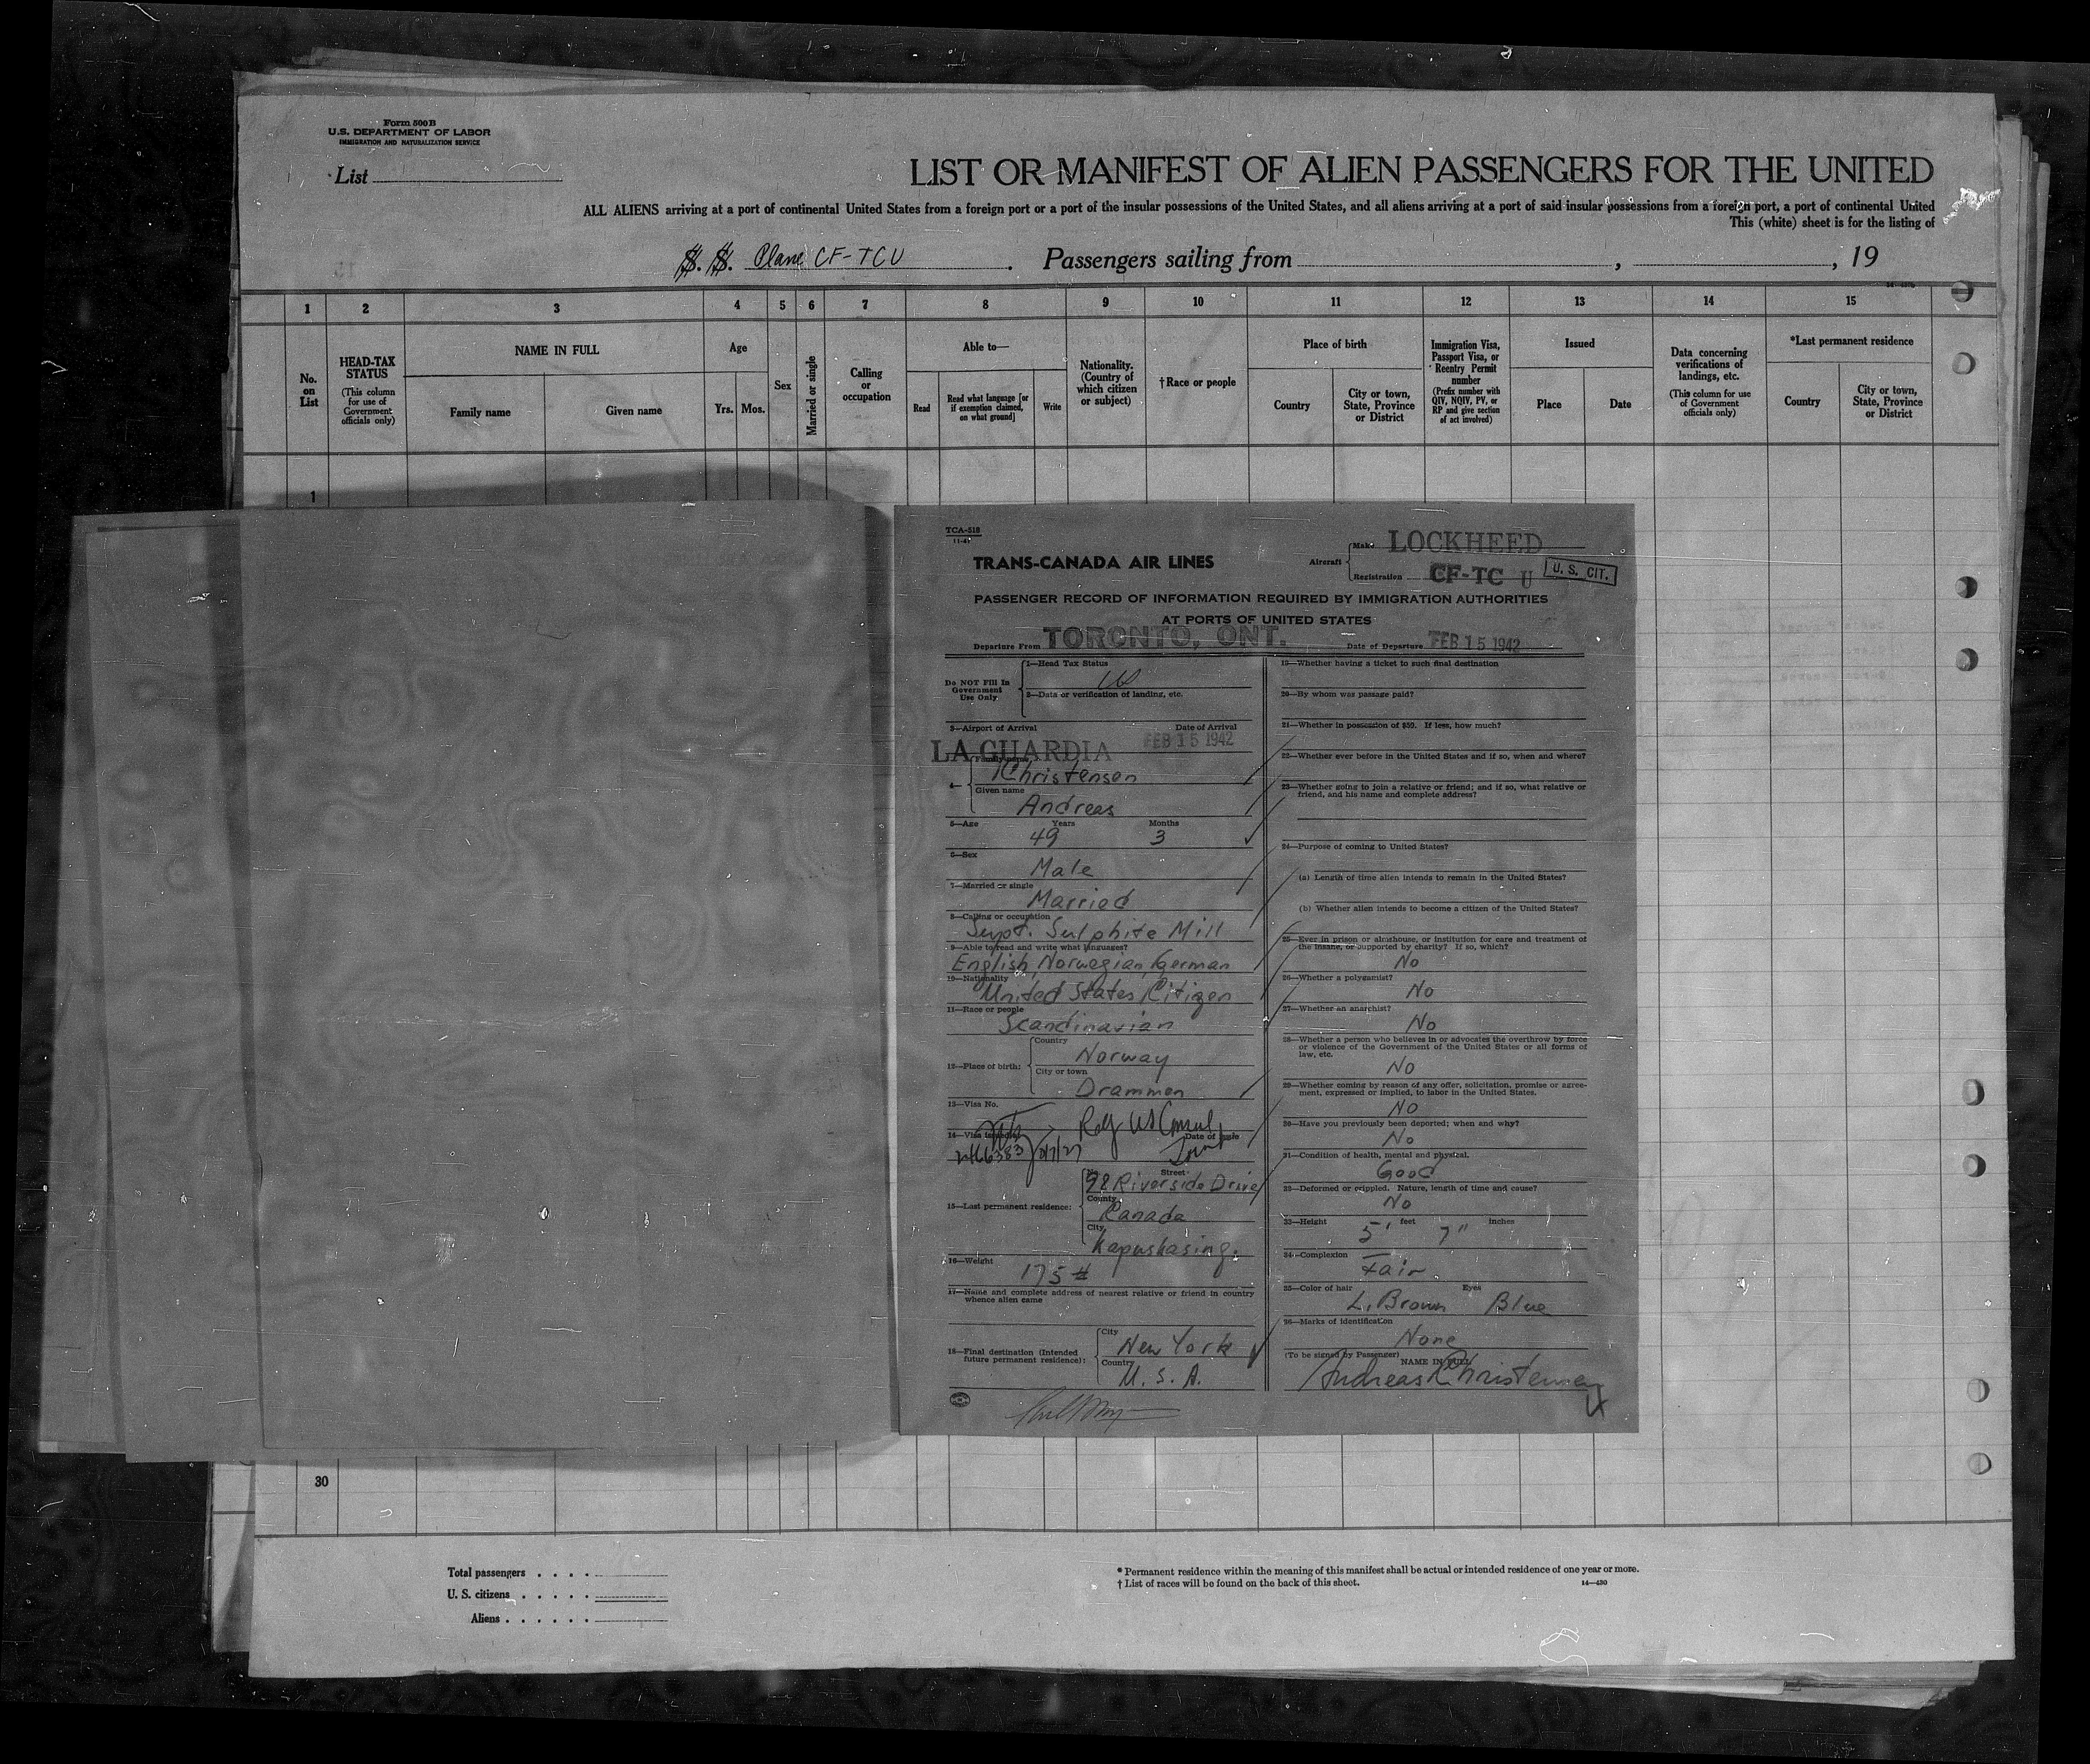 Form 500 B
U.S. DEPARTMENT OF LABOR
IMMIGRATION AND NATURALIZATION SERVICE
List
LIST OR MANIFEST OF ALIEN PASSENGERS FOR THE UNITED
ALL ALIENS arriving at a port of continental United States from a foreign port or a port of the insular possessions of the United States, and all aliens arriving at a port of said insular possessions from a foreign port, a port of continental United
This (white) sheet is for the listing of
S. S. Plane CF-TCU . Passengers sailing from , , 19
1 2 3 4 5 6 7 8 9 10 11 12 13 14 15
No. on List
HEAD-TAX STATUS
(This column for use of Government officials only)
NAME IN FULL
Family name
Given name
Age
Yrs. Mos.
Sex
Married or single
Calling or occupation
Able to—
Read
Read what language [or if exemption claimed, on what ground]
Write
Nationality. (Country of which citizen or subject)
†Race or people
Place of birth
Country
City or town, State, Province or District
Immigration Visa, Passport Visa, or Reentry Permit number
(Prefix number with QIV, NQIV, PV, or RP and give section of act involved)
Issued
Place
Date
Data concerning verifications of landings, etc.
(This column for use of Government officials only)
*Last permanent residence
Country
City or town, State, Province or District
1
TCA-518
11-41
TRANS-CANADA AIR LINES
Aircraft
Make LOCKHEED
Registration CF-TC U
U. S. CIT.
PASSENGER RECORD OF INFORMATION REQUIRED BY IMMIGRATION AUTHORITIES
AT PORTS OF UNITED STATES
Departure From TORONTO, ONT. Date of Departure FEB 15 1942
Do NOT Fill In
Government
Use Only
1—Head Tax Status
2—Data or verification of landing, etc.
3—Airport of Arrival Date of Arrival
LA GUARDIA FEB 15 1942
4— Family name
Christensen
Given name
Andreas
5—Age Years Months
49 3
6—Sex
Male
7—Married or single
Married
8—Calling or occupation
Supt. Sulphite Mill
9—Able to read and write what languages?
English, Norwegian, German
10—Nationality
United States Citizen
11—Race or people
Scandinavian
12—Place of birth:
Country
Norway
City or town
Drammen
13—Visa No.
14—Visa Date of Issue
15—Last permanent residence:
No. Street
98 Riverside Drive
County
Canada
City
Kapuskasing.
16—Weight
175 #
17—Name and complete address of nearest relative or friend in country
whence alien came
18—Final destination (Intended
future permanent residence):
City
New York
Country
U. S. A.
19—Whether having a ticket to such final destination
20—By whom was passage paid?
21—Whether in possession of $50. If less, how much?
22—Whether ever before in the United States and if so, when and where?
23—Whether going to join a relative or friend; and if so, what relative or
friend, and his name and complete address?
24—Purpose of coming to United States?
(a) Length of time alien intends to remain in the United States?
(b) Whether alien intends to become a citizen of the United States?
25—Ever in prison or almshouse, or institution for care and treatment of
the insane, or supported by charity? If so, which?
No
26—Whether a polygamist?
No
27—Whether an anarchist?
No
28—Whether a person who believes in or advocates the overthrow by force
or violence of the Government of the United States or all forms of
law, etc.
No
29—Whether coming by reason of any offer, solicitation, promise or agree-
ment, expressed or implied, to labor in the United States.
No
30—Have you previously been deported; when and why?
No
31—Condition of health, mental and physical.
Good
32—Deformed or crippled. Nature, length of time and cause?
No
33—Height feet inches
5' 7"
34—Complexion
Fair
35—Color of hair Eyes
L. Brown Blue
36—Marks of identification
None
(To be signed by Passenger) NAME IN FULL
Andreas Christensen
30
Total passengers
U. S. citizens
Aliens
* Permanent residence within the meaning of this manifest shall be actual or intended residence of one year or more.
† List of races will be found on the back of this sheet.
14—430